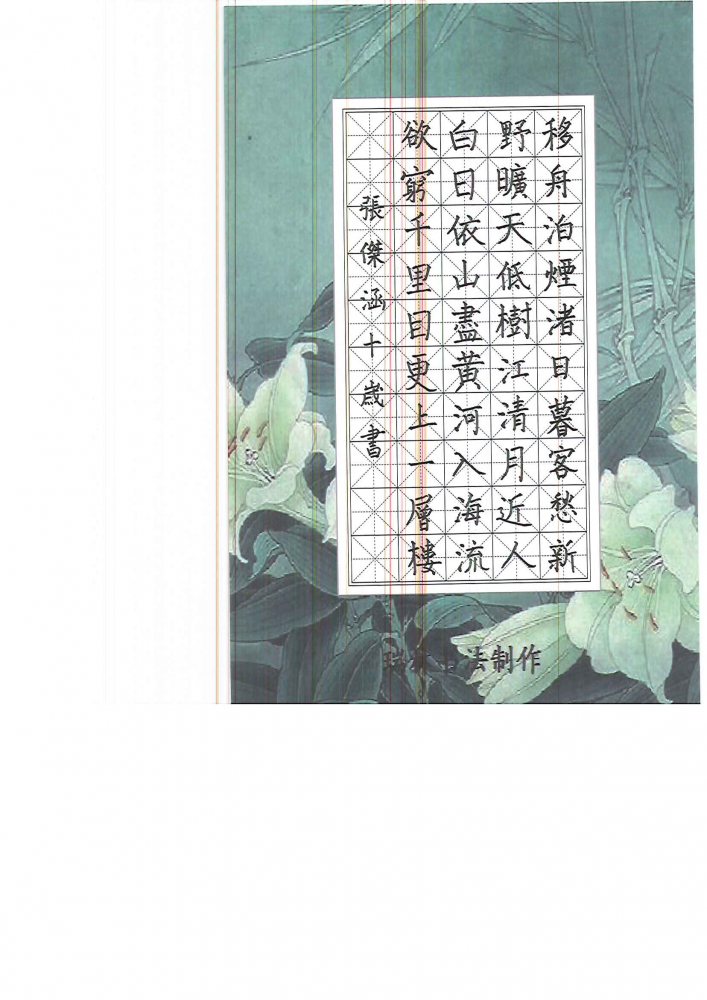 移舟泊煙渚日暮客愁新
野曠天低樹江清月近人
白日依山盡黃河入海流
欲窮千里目更上一層樓
張傑涵十歲書
書法制作